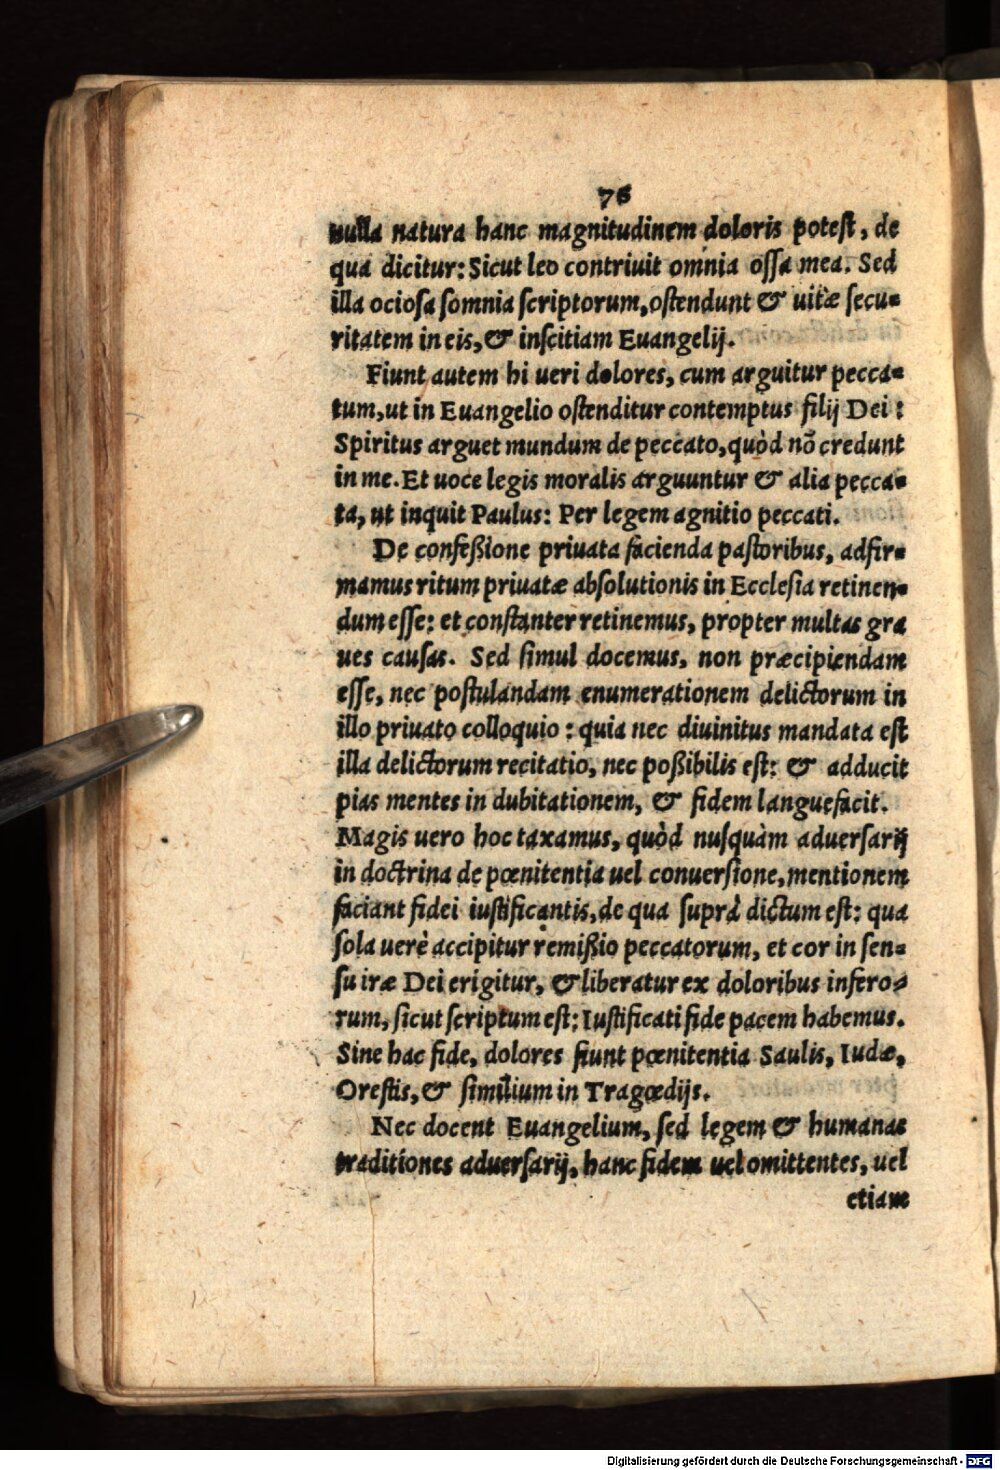 76
nulla natura hanc magnitudinem doloris potest, de
qua dicitur: Sicut leo contriuit omnia ossa mea. Sed
illa ociosa somnia scriptorum, ostendunt & uitæ secu-
ritatem in eis, & inscitiam Euangelij.
Fiunt autem hi ueri dolores, cum arguitur pecca-
tum, ut in Euangelio ostenditur contemptus filij Dei:
Spiritus arguet mundum de peccato, quòd nõ credunt
in me. Et uoce legis moralis arguuntur & alia pecca-
ta, ut inquit Paulus: Per legem agnitio peccati.
De confeßione priuata facienda pastoribus, adfir-
mamus ritum priuatæ absolutionis in Ecclesia retinen-
dum esse: et constanter retinemus, propter multas gra
ues causas. Sed simul docemus, non præcipiendam
esse, nec postulandam enumerationem delictorum in
illo priuato colloquio: quia nec diuinitus mandata est
illa delictorum recitatio, nec poßibilis est: & adducit
pias mentes in dubitationem, & fidem languefacit.
Magis uero hoc taxamus, quòd nusquàm aduersarij
in doctrina de pœnitentia uel conuersione, mentionem
faciant fidei iustificantis, de qua suprà dictum est: qua
sola uerè accipitur remißio peccatorum, et cor in sen-
su iræ Dei erigitur, & liberatur ex doloribus infero-
rum, sicut scriptum est: Iustificati fide pacem habemus.
Sine hac fide, dolores fiunt pœnitentia Saulis, Iudæ,
Orestis, & similium in Tragœdijs.
Nec docent Euangelium, sed legem & humanas
traditiones aduersarij, hanc fidem uel omittentes, uel
etiam
Digitalisierung gefördert durch die Deutsche Forschungsgemeinschaft - DFG